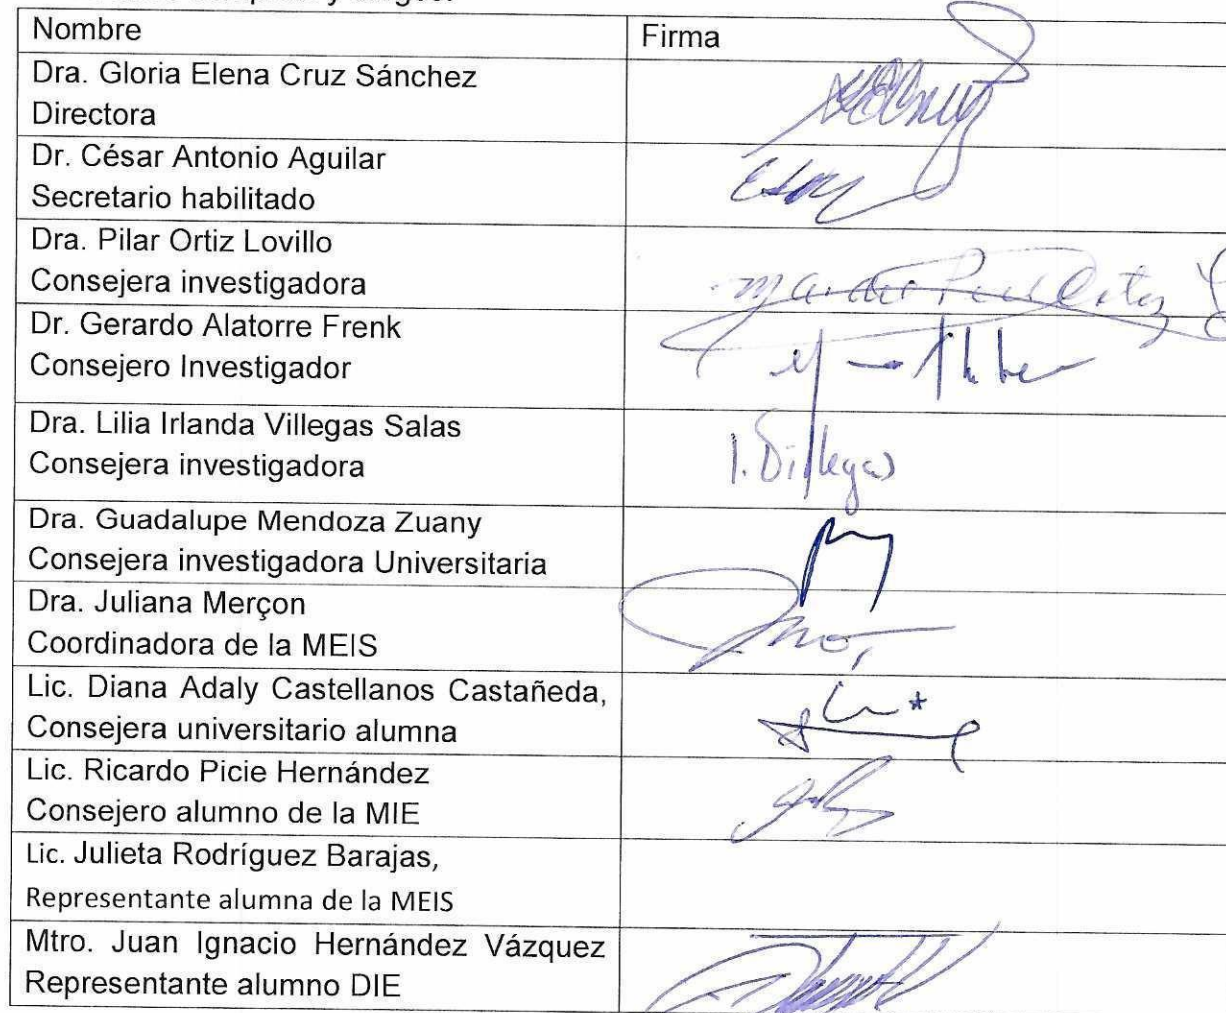 Nombre
Firma
Dra. Gloria Elena Cruz Sánchez
Directora
Dr. César Antonio Aguilar
Secretario habilitado
Dra. Pilar Ortiz Lovillo
Consejera investigadora
Dr. Gerardo Alatorre Frenk
Consejero Investigador
Dra. Lilia Irlanda Villegas Salas
Consejera investigadora
I. Villegas
Dra. Guadalupe Mendoza Zuany
Consejera investigadora Universitaria
Dra. Juliana Merçon
Coordinadora de la MEIS
Lic. Diana Adaly Castellanos Castañeda,
Consejera universitario alumna
Lic. Ricardo Picie Hernández
Consejero alumno de la MIE
Lic. Julieta Rodríguez Barajas,
Representante alumna de la MEIS
Mtro. Juan Ignacio Hernández Vázquez
Representante alumno DIE